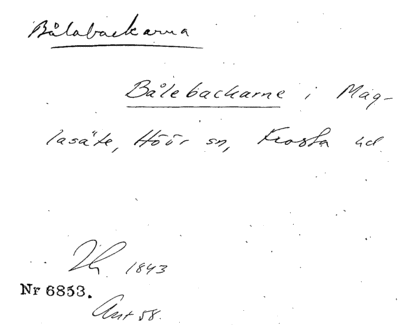 Bålabackarna
Bålebackarne i Mag-
lasäte, Höör sn, Frosta hd
1843
Nr 6853.
Ant 58.